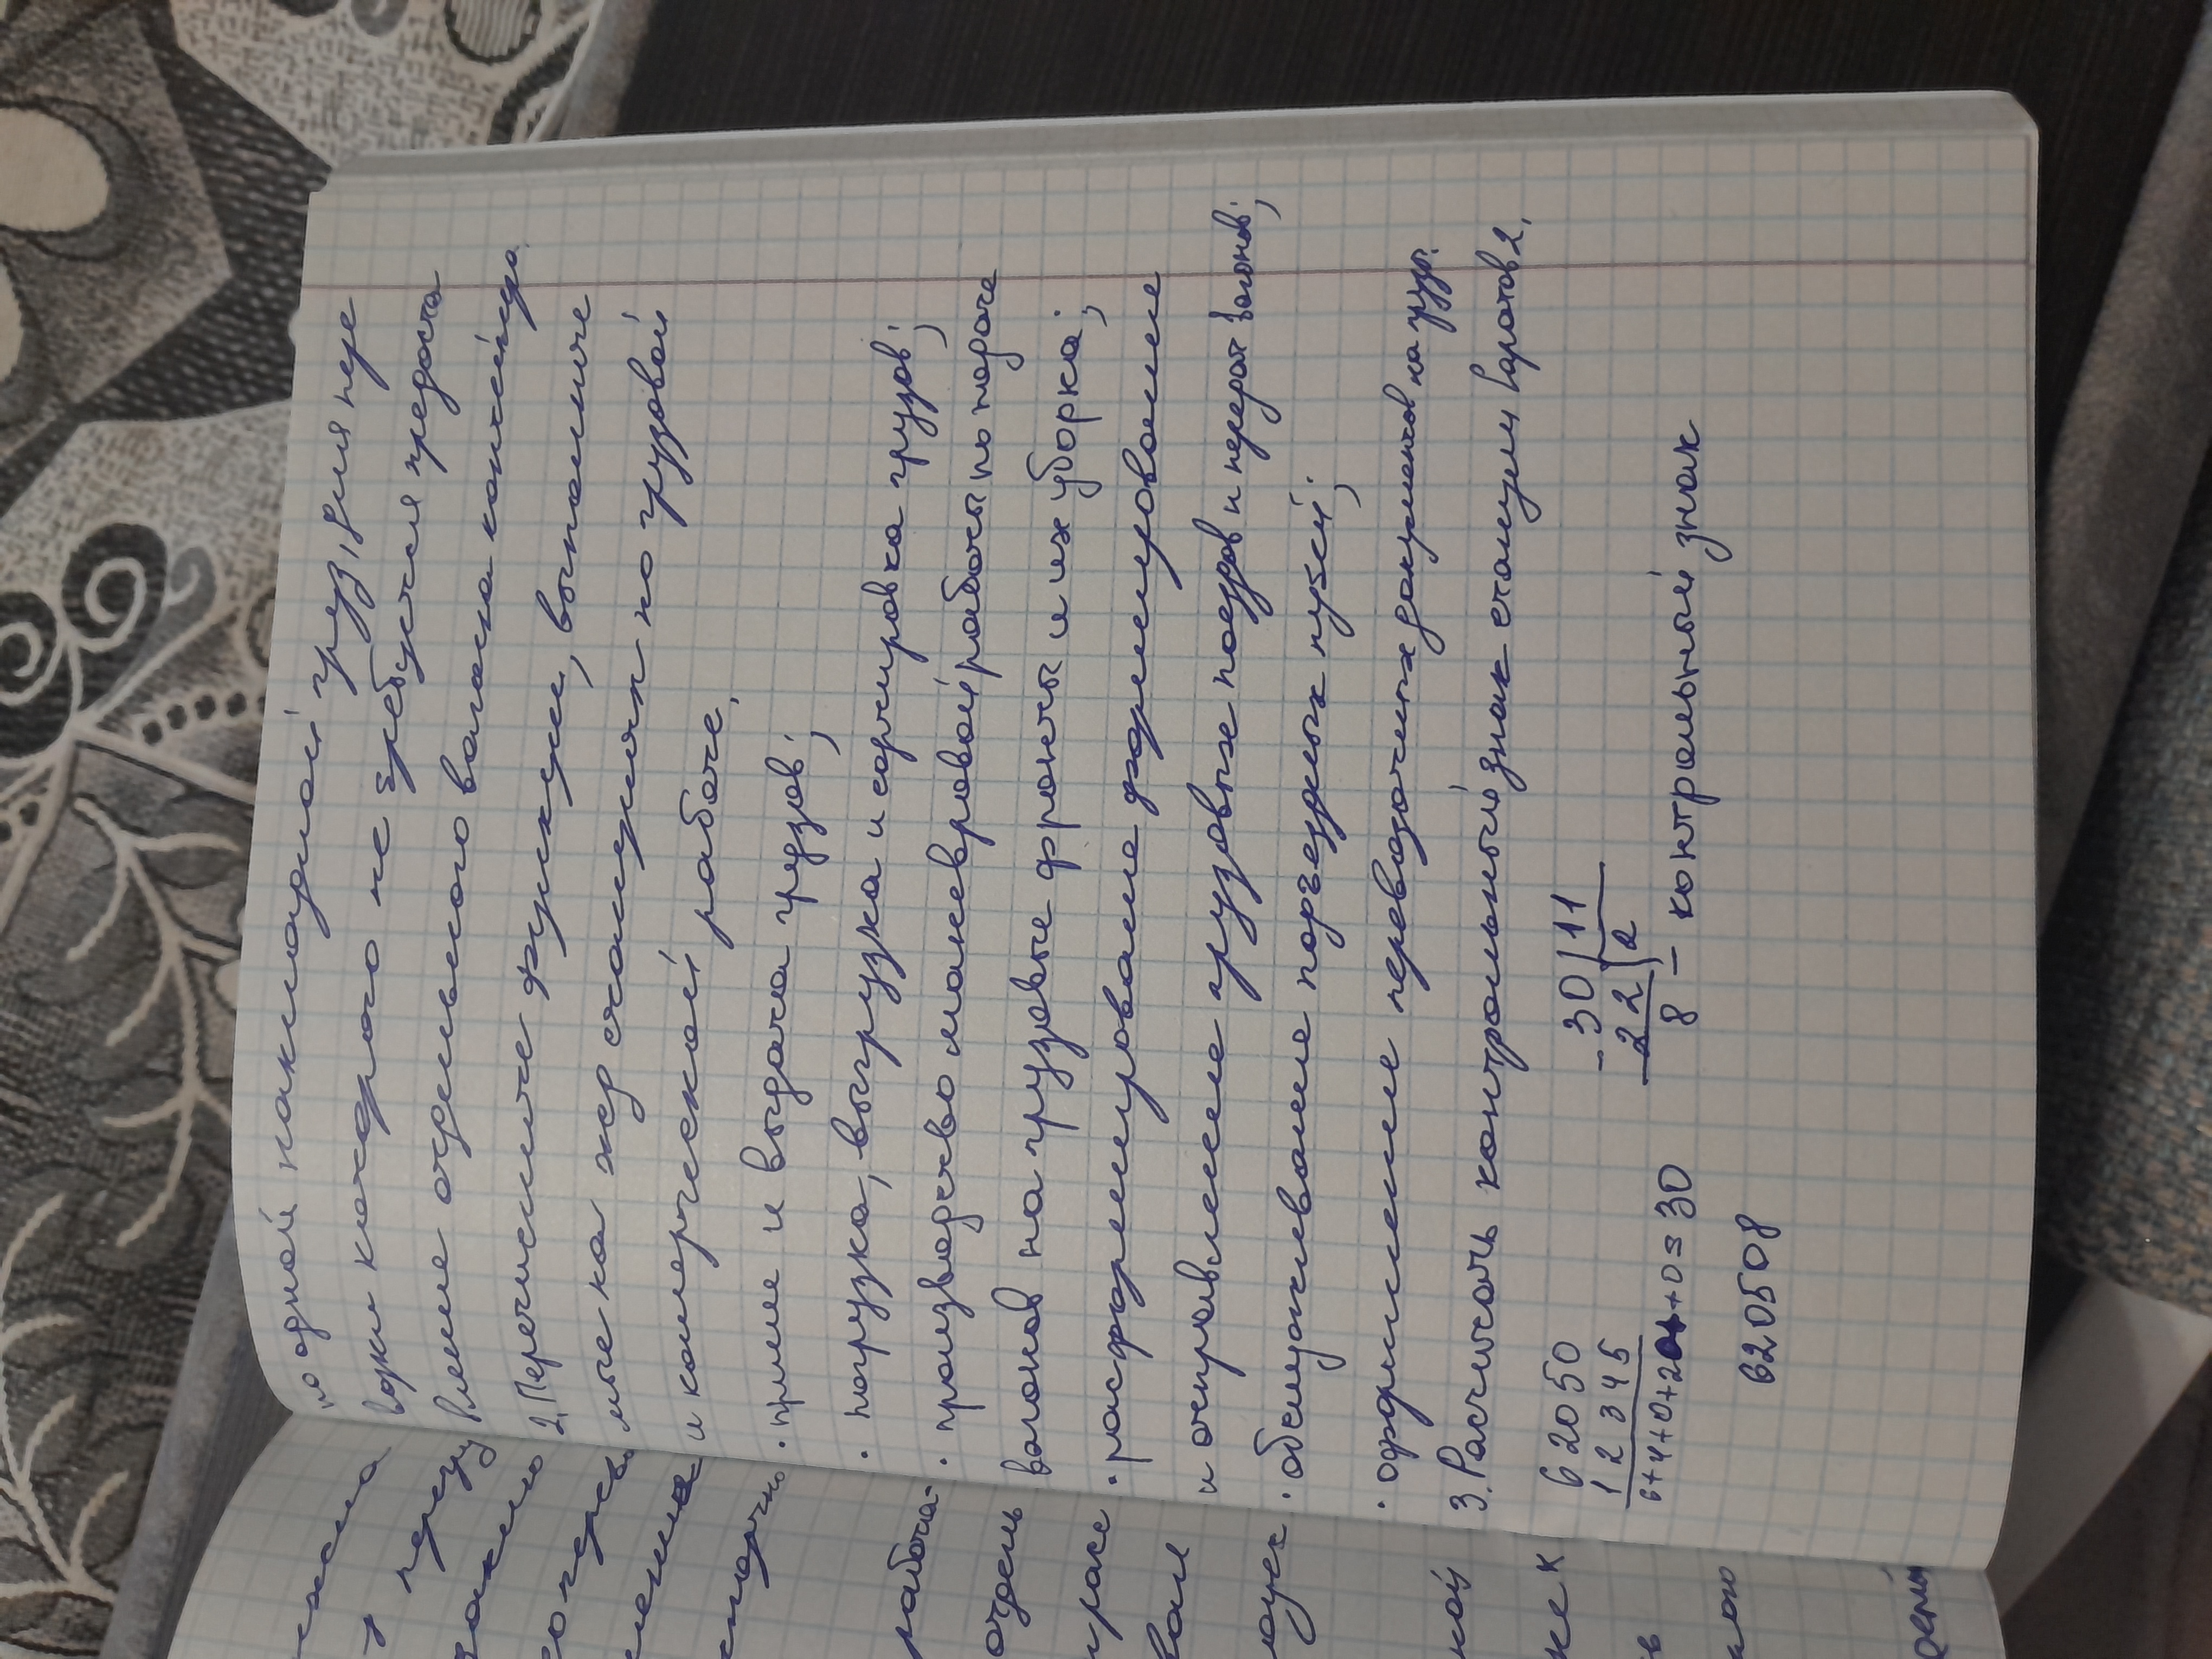 по одной накладной груз, для пере
возки которого не требуется предоста
вление отдельного вагона контейнера.
2. Перечислите функции, выполняе
мые на жд станциях по грузовой
и комерческой работе.
· прием и выдача грузов;
· погрузка, выгрузка и сортировка грузов;
· производство маневровой работы по подаче
вагонов на грузовые фронты и их уборка;
· расформирование формирование
и отправление грузовых поездов и перераб вагонов;
· обслуживание подъездных путей;
· оформление перевозочных документов на груз.
3. Расчитать контрольный знак станции Саратов 2.
62050
12345
6+4+0+20+0=30
30 | 11
22 | 2
8 – контрольный знак
620508